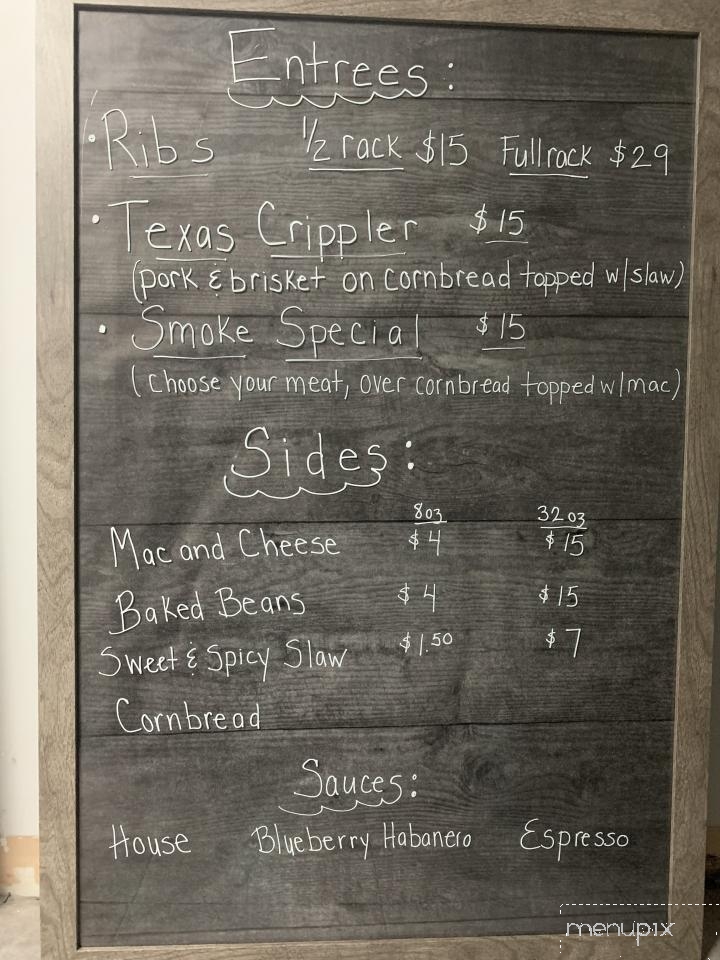 Entrees:
• Ribs ½ rack $15 Full rack $29
• Texas Crippler $15
(pork & brisket on cornbread topped w/slaw)
• Smoke Special $15
(choose your meat, over cornbread topped w/mac)
Sides:
8oz 32oz
Mac and Cheese $4 $15
Baked Beans $4 $15
Sweet & Spicy Slaw $1.50 $7
Cornbread
Sauces:
House Blueberry Habanero Espresso
menupix